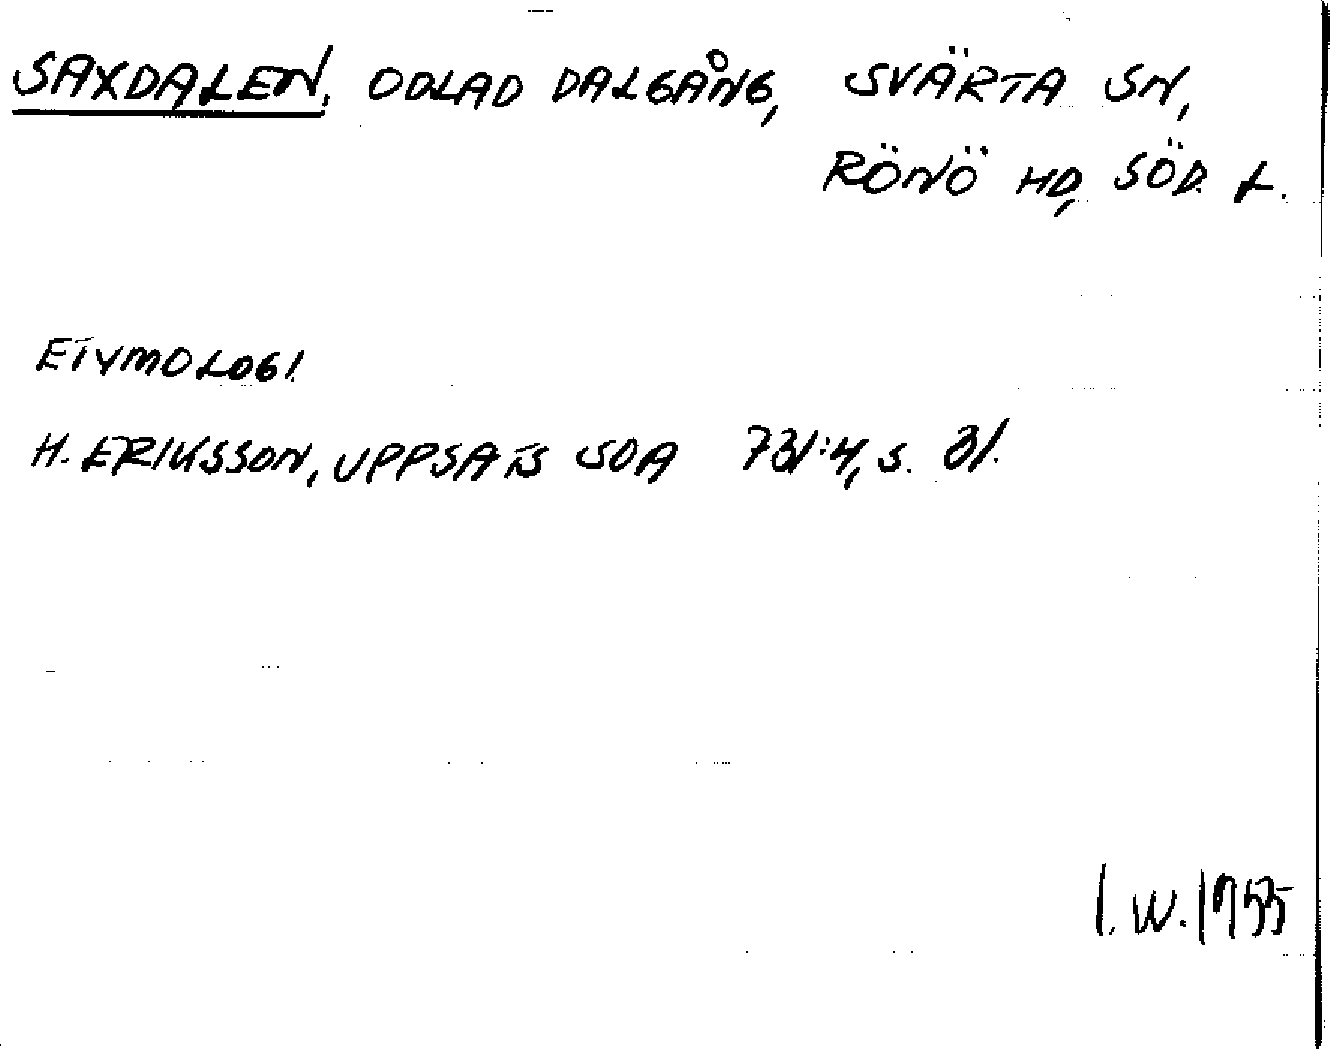 SAXDALEN, ODLAD DALGÅNG, SVÄRTA SN,
RÖNÖ HD, SÖD. L.
ETYMOLOGI.
H. ERIKSSON, UPPSATS SOA 731:4, s. 31.
I. W. 1955